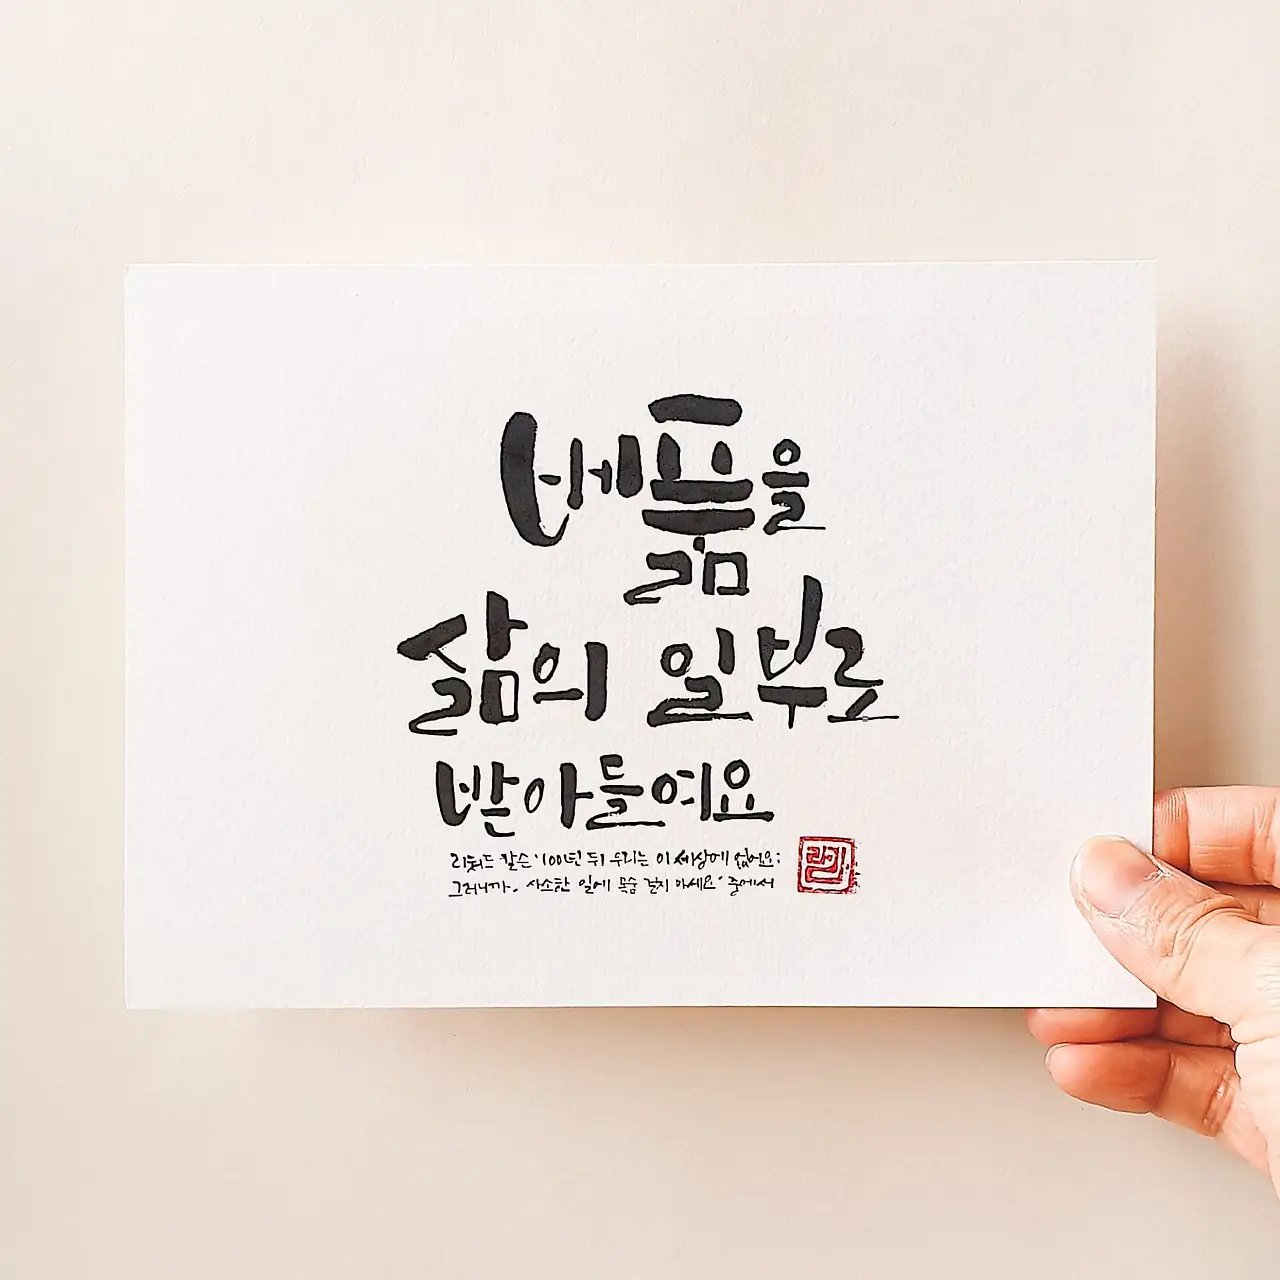 베풂을
삶의 일부로
받아들여요
리처드 칼슨 '100년 뒤 우리는 이 세상에 없어요;
그러니까, 사소한 일에 목숨 걸지 마세요' 중에서